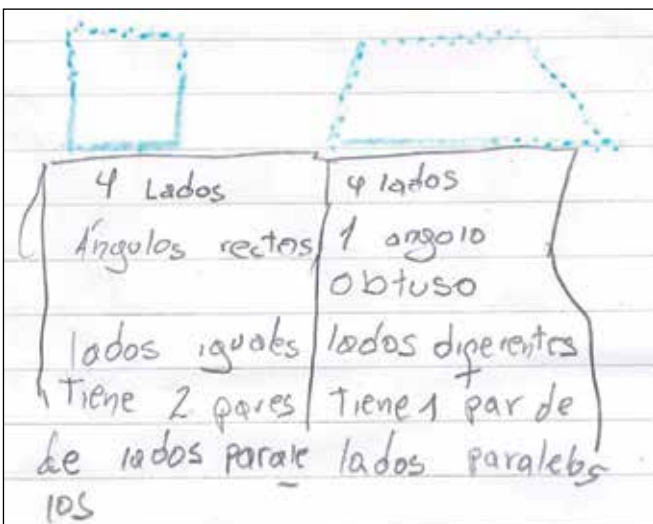 4 Lados
Ángulos rectos
lados iguales
Tiene 2 pares
de lados parale
los
4 lados
1 angolo
obtuso
lados diferentes
Tiene 1 par de
lados paralelos